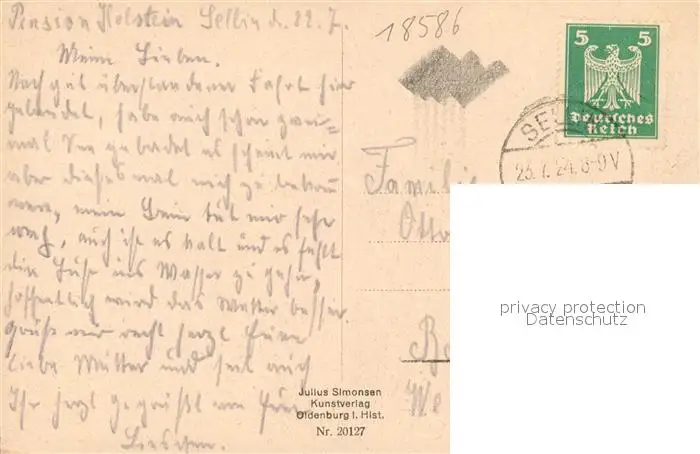 Pension Holstein Sellin d. 22. 7.
Meine Lieben.
Nach gut überstandener Fahrt hier
gelandet, habe mich schon zwei=
mal See gebadet es scheint mir
aber dieses mal nich zu bekom
mein Bein tut mir sehr
weh, auch ist es kalt und es fehlt
die Lust ins Wasser zu gehn,
hoffentlich wird das Wetter besser.
grüße mir recht herzl Eure
liebe Mutter und seid auch
Ihr herzl gegrüßt von Eurer
Lieschen.
18586
5 5
Deutsches
Reich
SEL
23.7.24.8-9V
Familie
Otto
Be
We
Julius Simonsen
Kunstverlag
Oldenburg i. Hlst.
Nr. 20127
privacy protection
Datenschutz